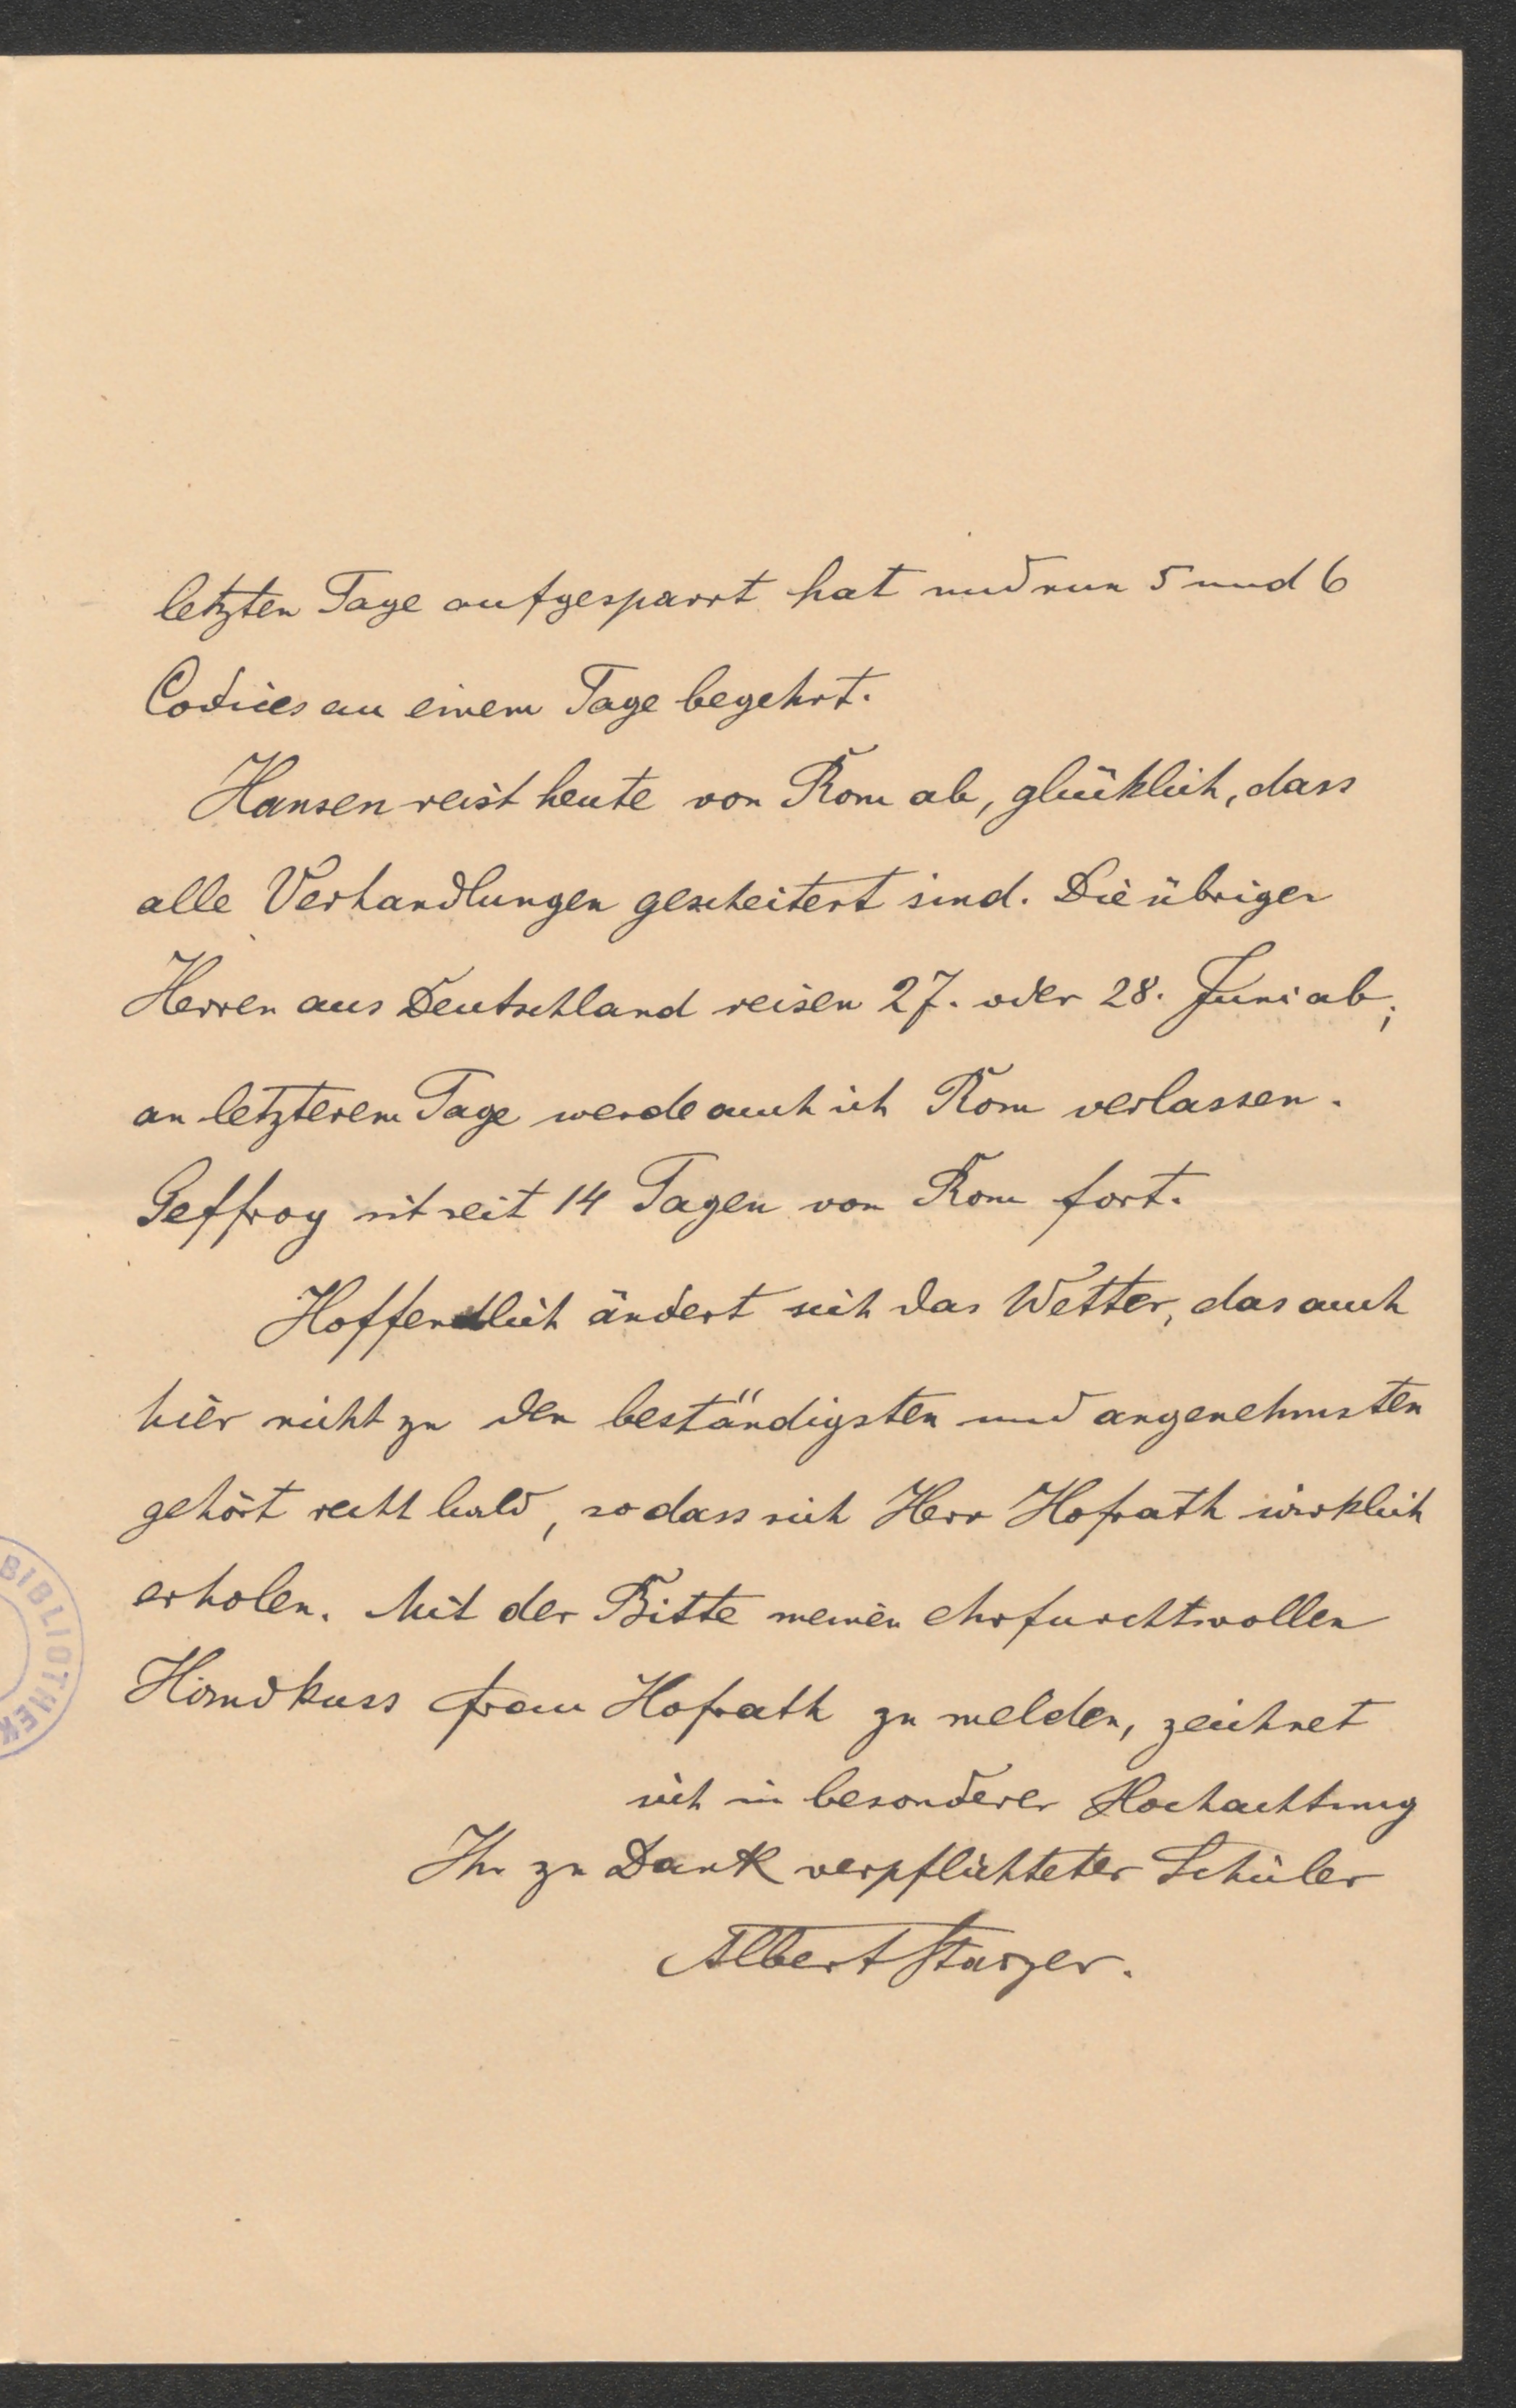 letzten Tage aufgesparrt hat und nun 5 und 6
Codices an einem Tage begehrt.
Hansen reist heute von Rom ab, glücklich, dass
alle Verhandlungen gescheitert sind. Die übrigen
Herren aus Deutschland reisen 27. oder 28. Juni ab;
an letzterem Tage werde auch ich Rom verlassen.
Geffroy ist seit 14 Tagen von Rom fort.
Hoffendlich ändert sich das Wetter, das auch
hier nicht zu den beständigsten und angenehmsten
gehört recht bald, so dass sich Herr Hofrath wirklich
erholen. Mit der Bitte meinen ehrfurchtvollen
Handkuss Frau Hofrath zu melden, zeichnet
sich in besonderer Hochachtung
Ihr zu Dank verpflichteter Schüler
Albert Starzer.
BIBLIOTHEK